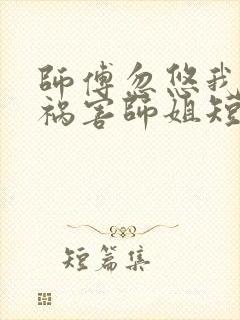 師傅忽悠我
禍害師姐短
短篇集